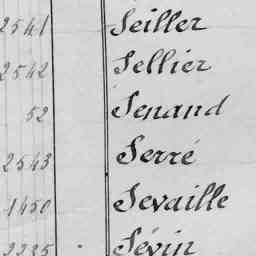 2541 Seiller
2542 Sellier
52 Senand
2543 Serré
1450 Sevaille
2235 Sévin